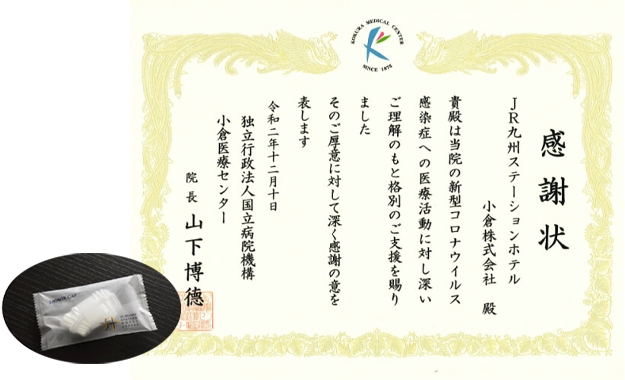 KOKURA MEDICAL CENTER
SINCE 1875
感謝状
JR九州ステーションホテル
小倉株式会社 殿
貴殿は当院の新型コロナウイルス
感染症への医療活動に対し深い
ご理解のもと格別のご支援を賜り
ました
そのご厚意に対して深く感謝の意を
表します
令和二年十二月十日
独立行政法人国立病院機構
小倉医療センター
院長 山下博德
SHOWER CAP